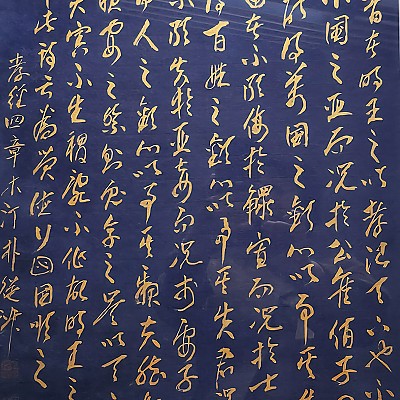 昔者明王之以孝治天下也不
小國之臣而況於公侯伯子
故得萬國之歡心以事其先
者不敢侮於鰥寡而況於士
得百姓之歡心以事其先君治
不敢失於臣妾而況於妻子
得人之歡心以事其親夫然故
親安之祭則鬼享之是以天下
災害不生禍亂不作故明王之
如此詩云有覺德行四國順之
孝經四章 木汀朴